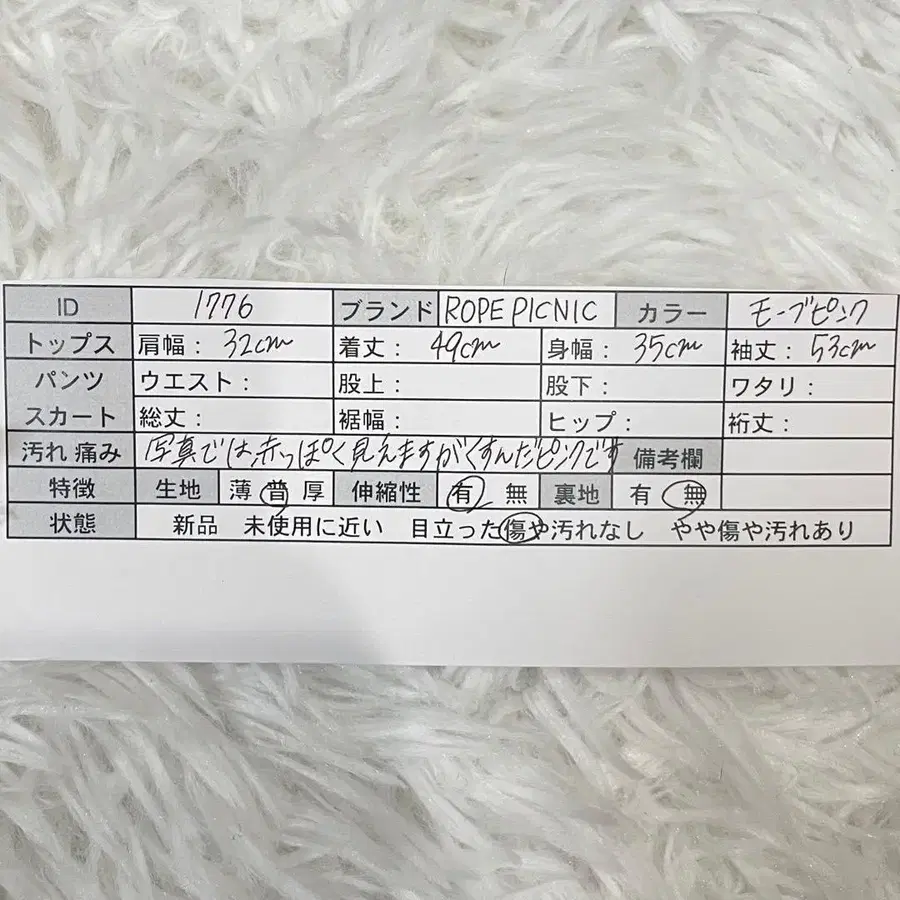 ID 1776 ブランド ROPE PICNIC カラー モーブピンク
トップス 肩幅： 32cm 着丈： 49cm 身幅： 35cm 袖丈： 53cm
パンツ ウエスト： 股上： 股下： ワタリ：
スカート 総丈： 裾幅： ヒップ： 裄丈：
汚れ 痛み 写真では赤っぽく見えますがくすんだピンクです 備考欄
特徴 生地 薄 普 厚 伸縮性 有 無 裏地 有 無
状態 新品 未使用に近い 目立った傷や汚れなし やや傷や汚れあり